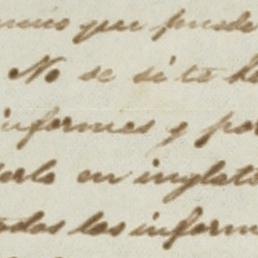 que puede
No se si te ha
informes y por
en inglate
todos los inform